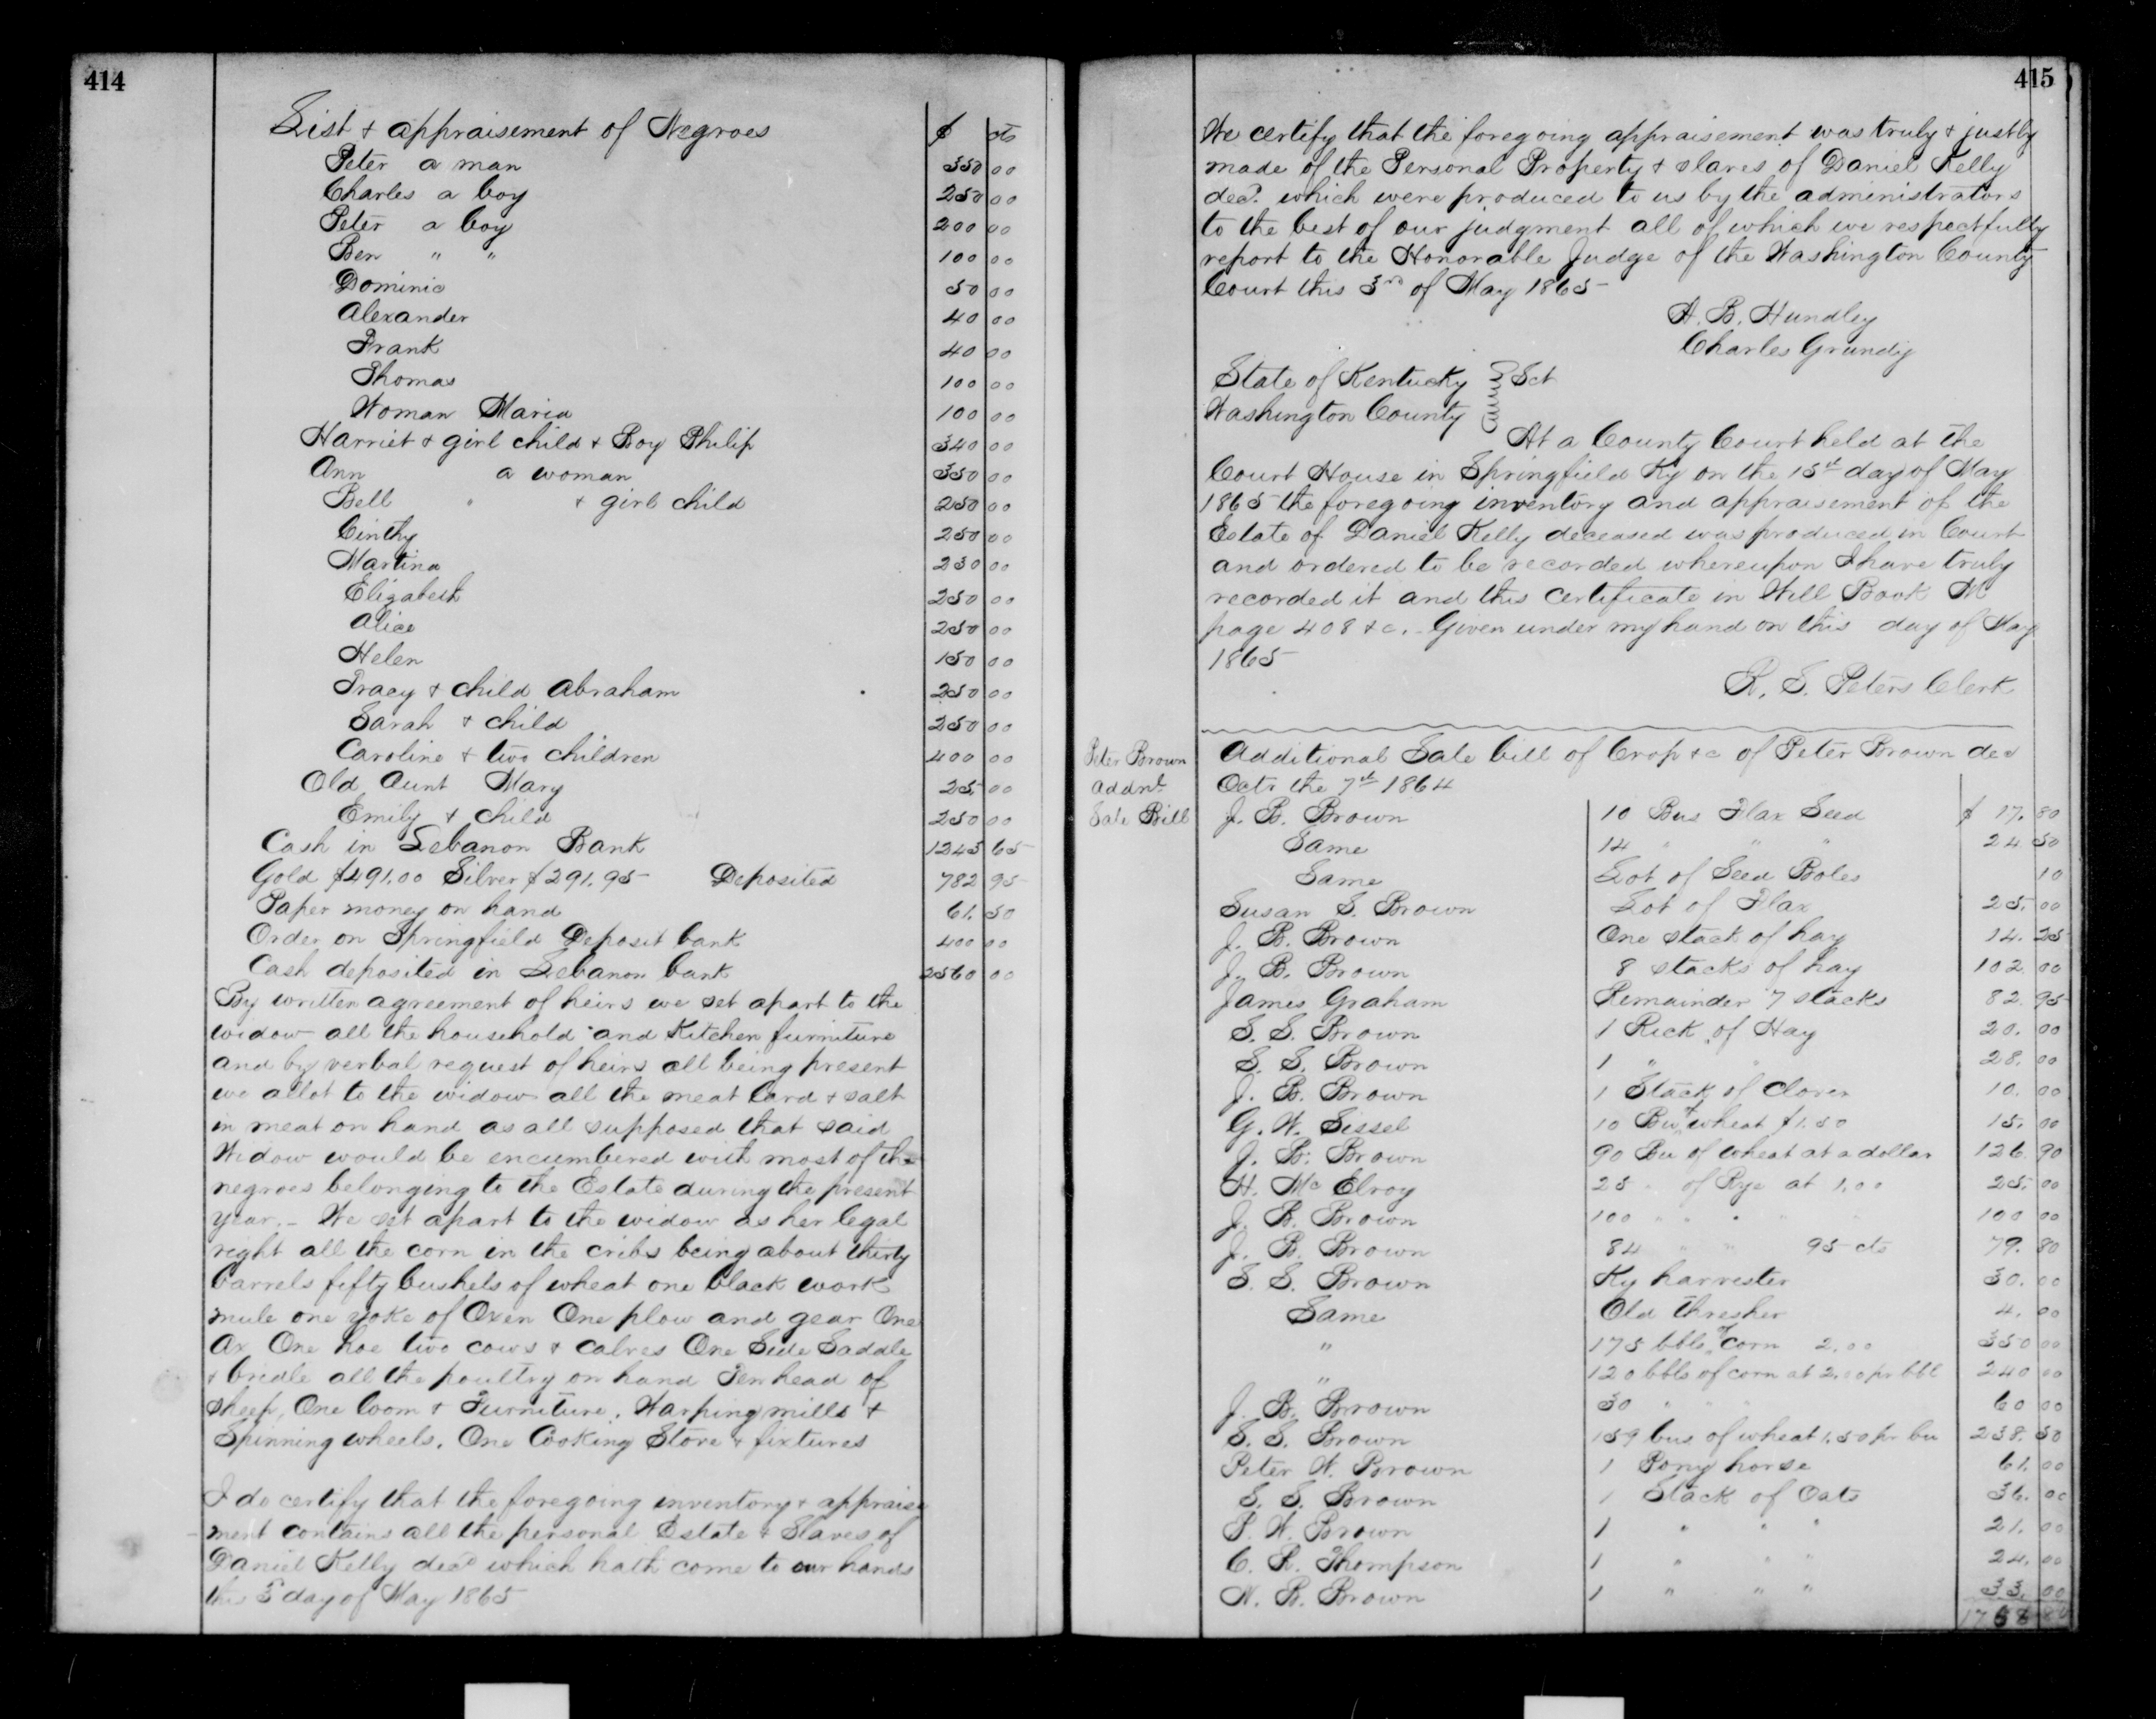 414
List & appraisement of Negroes $ cts
Peter a man 350 00
Charles a boy 250 00
Peter a boy 200 00
Ben " " 100 00
Dominic 50 00
Alexander 40 00
Frank 40 00
Thomas 100 00
Woman Maria 100 00
Harriet & girl child & Boy Philip 340 00
Ann a woman 350 00
Bell " & girl child 250 00
Cinthy 250 00
Martina 230 00
Elizabeth 250 00
Alice 250 00
Helen 150 00
Tracy & child Abraham 250 00
Sarah & child 250 00
Caroline & two children 400 00
Old Aunt Mary 25 00
Emily & child 250 00
Cash in Lebanon Bank 1245 65
Gold $491.00 Silver $291.95 Deposited 782 95
Paper money on hand 61. 50
Order on Springfield Deposit bank 400 00
Cash deposited in Lebanon bank 2560 00
By written agreement of heirs we set apart to the
widow all the household and Kitchen furniture
and by verbal request of heirs all being present
we allot to the widow all the meat lard & salt
in meat on hand as all supposed that said
Widow would be encumbered with most of the
negroes belonging to the Estate during the present
year. – We set apart to the widow as her legal
right all the corn in the cribs being about thirty
barrels fifty bushels of wheat one black work
mule one yoke of Oxen One plow and gear One
Ax One hoe two cows & calves One Side Saddle
& bridle all the poultry on hand Ten head of
sheep, One loom & Furniture, Warping mills &
Spinning wheels. One Cooking Stove & fixtures
I do certify that the foregoing inventory & appraise
ment contains all the personal Estate & Slaves of
Daniel Kelly decd which hath come to our hands
this 3d day of May 1865
415
We certify that the foregoing appraisement was truly & justly
made of the Personal Property & slaves of Daniel Kelly
decd. which were produced to us by the administrators
to the best of our judgment all of which we respectfully
report to the Honorable Judge of the Washington County
Court this 3rd of May 1865
A. B. Hundley
Charles Grundy
State of Kentucky } Sct
Washington County }
At a County Court held at the
Court House in Springfield Ky on the 15th day of May
1865 the foregoing inventory and appraisement of the
Estate of Daniel Kelly deceased was produced in Court
and ordered to be recorded whereupon I have truly
recorded it and this certificate in Will Book M
page 408 &c. – Given under my hand on this day of May
1865
R. S. Peters Clerk
Peter Brown
Addnl
Sale Bill
Additional Sale bill of Crop &c of Peter Brown decd
Octr the 7th 1864
J. B. Brown 10 Bus Flax Seed $ 17. 80
Same 14 " " " 24 50
Same Lot of Seed Boles 10
Susan S. Brown Lot of Flax 25. 00
J. B. Brown One stack of hay 14. 25
J. B. Brown 8 stacks of hay 102. 00
James Graham Remainder 7 stacks 82. 95
S. S. Brown 1 Rick of Hay 20. 00
S. S. Brown 1 " " 28. 00
J. B. Brown 1 Stack of Clover 10. 00
G. W. Sissel 10 Bu of wheat $1.50 15. 00
J. B. Brown 90 Bu of wheat at a dollar 126. 90
H. McElroy 25 " of Rye at 1.00 25. 00
J. B. Brown 100 " " " " 100 00
J. B. Brown 84 " " 95 cts 79. 80
S. S. Brown Ky harvester 30. 00
Same Old thresher 4. 00
" 175 bbls of corn 2.00 350 00
" 120 bbls of corn at 2.00 pr bbl 240 00
J. B. Brown 30 " " 60 00
S. S. Brown 159 bus of wheat 1.50 pr bu 238. 50
Peter W. Brown 1 Pony horse 61. 00
S. S. Brown 1 Stack of Oats 36. 00
P. W. Brown 1 " " " 21. 00
C. R. Thompson 1 " " " 24. 00
N. B. Brown 1 " " " 33. 00